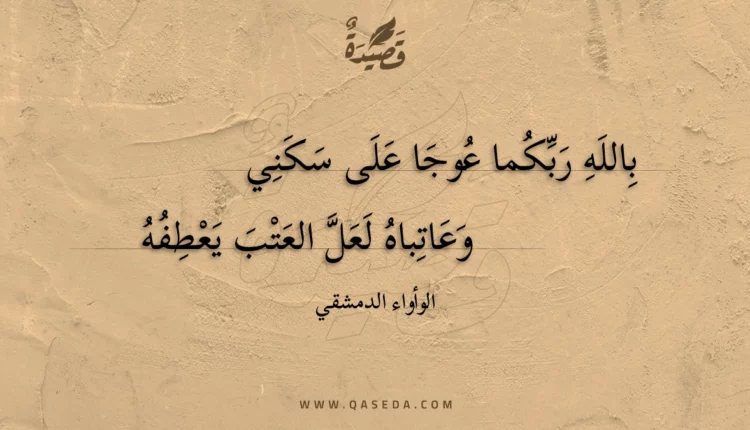 قَصِيْدَةٌ
بِاللَهِ رَبِّكُما عُوجَا عَلَى سَكَنِي
وَعَاتِباهُ لَعَلَّ العَتْبَ يَعْطِفُهُ
الوأواء الدمشقي
WWW.QASEDA.COM